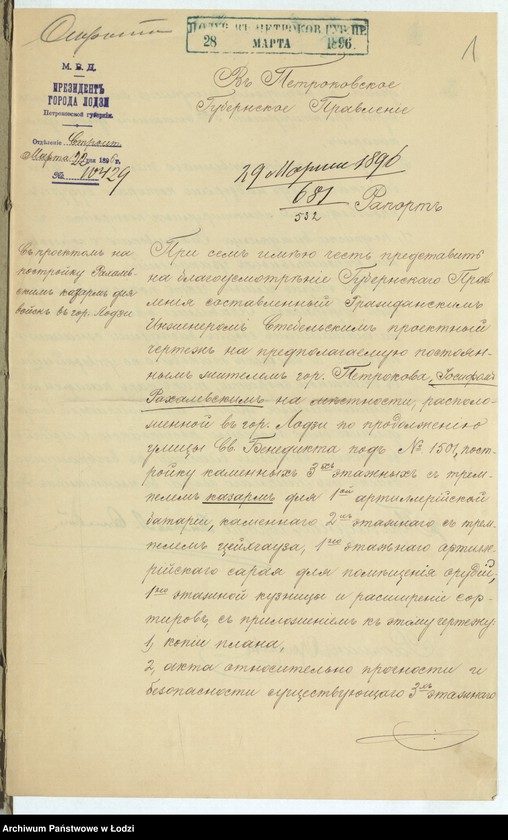 ПОЛУЧ. ВЪ ПЕТРОКОВ. ГУБ. ПР.
28 МАРТА 1896.
1
М. В. Д.
ПРЕЗИДЕНТЪ
ГОРОДА ЛОДЗИ
Петроковской губерніи.
Отдѣленіе Строит.
Марта 22 дня 1896 г.
№ 10429
Въ Петроковское
Губернское Правленіе
29 Марта 1896
681
532
Рапортъ
Съ проектомъ на
постройку Рахалев-
скимъ казармъ для
войскъ въ гор. Лодзи
При семъ имѣю честь представить
на благоусмотрѣніе Губернскаго Прав
ленія составленный Гражданскимъ
Инженеромъ Стебельскимъ проектный
чертежъ на предполагаемую постоян-
нымъ жителемъ гор. Петрокова, Іосифомъ
Рахалевскимъ на мѣстности, располо-
женной въ гор. Лодзи по продолженію
улицы Св Бенедикта подъ № 1501, пост-
ройку каменныхъ 3хъ этажныхъ съ трем-
пелемъ казармъ для 1ой артиллерійской
батареи, каменнаго 2хъ этажнаго съ трем-
пелемъ цейхгауза, 1но этажнаго артилле-
рійскаго сарая для помѣщенія орудій,
1но этажной кузницы и расширеніе сор-
тировъ, съ приложеніемъ къ этому чертежу:
1, копіи плана,
2, акта относительно прочности и
безопасности существующаго 3хъ этажнаго
Archiwum Państwowe w Łodzi